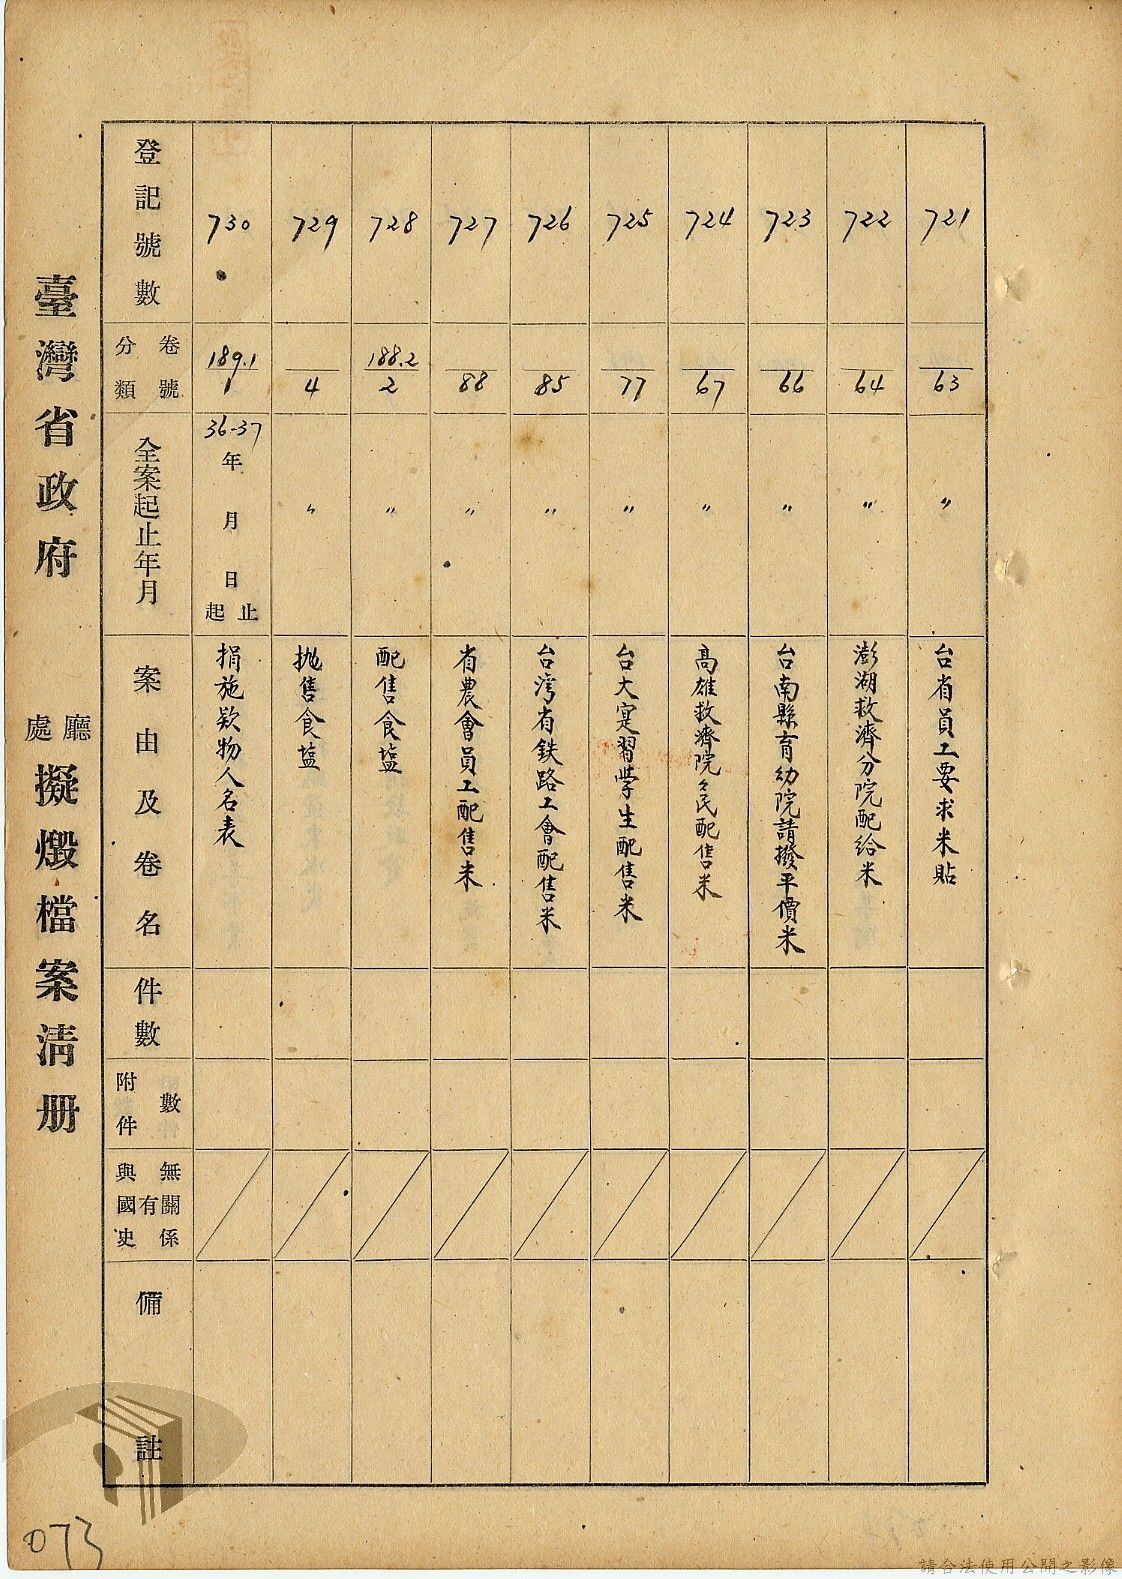 721
63
〃
台省員工要求米貼
722
64
〃
澎湖救濟分院配給米
723
66
〃
台南縣育幼院請撥平價米
724
67
〃
高雄救濟院々民配售米
725
77
〃
台大寔習學生配售米
726
85
〃
台湾省鉄路工會配售米
727
88
〃
省農會員工配售米
728
188.2
2
〃
配售食塩
729
4
〃
拋售食塩
730
189.1
1
36-37
年
月
日
起止
捐施欵物人名表
登記號數
卷號
分類
全案起止年月
案由及卷名
件數
附件數
與國史
有
無關係
備註
臺灣省政府
廳
處
擬燬檔案清册
073
請合法使用公開之影像